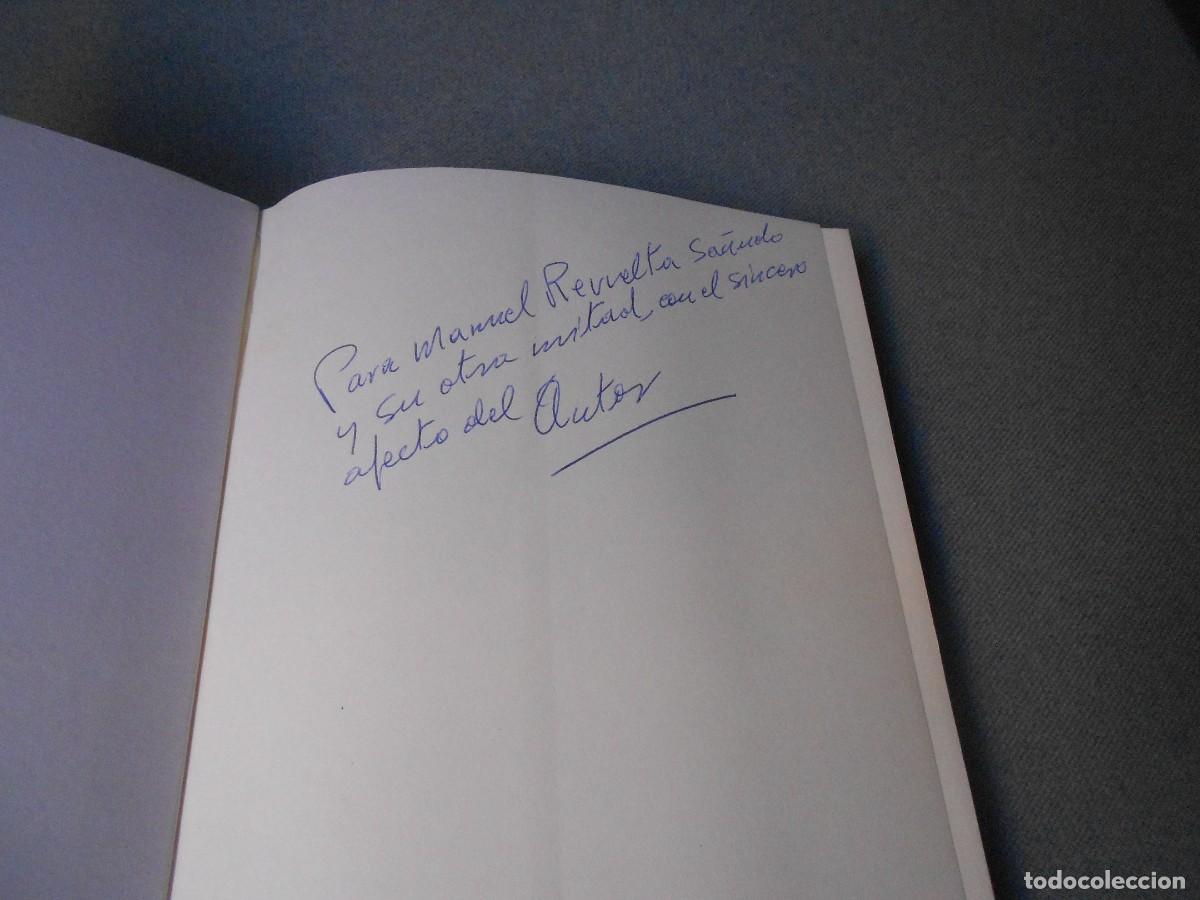 Para Manuel Revuelta Sañudo
y su otra mitad, con el sincero
afecto del Autor
todocoleccion